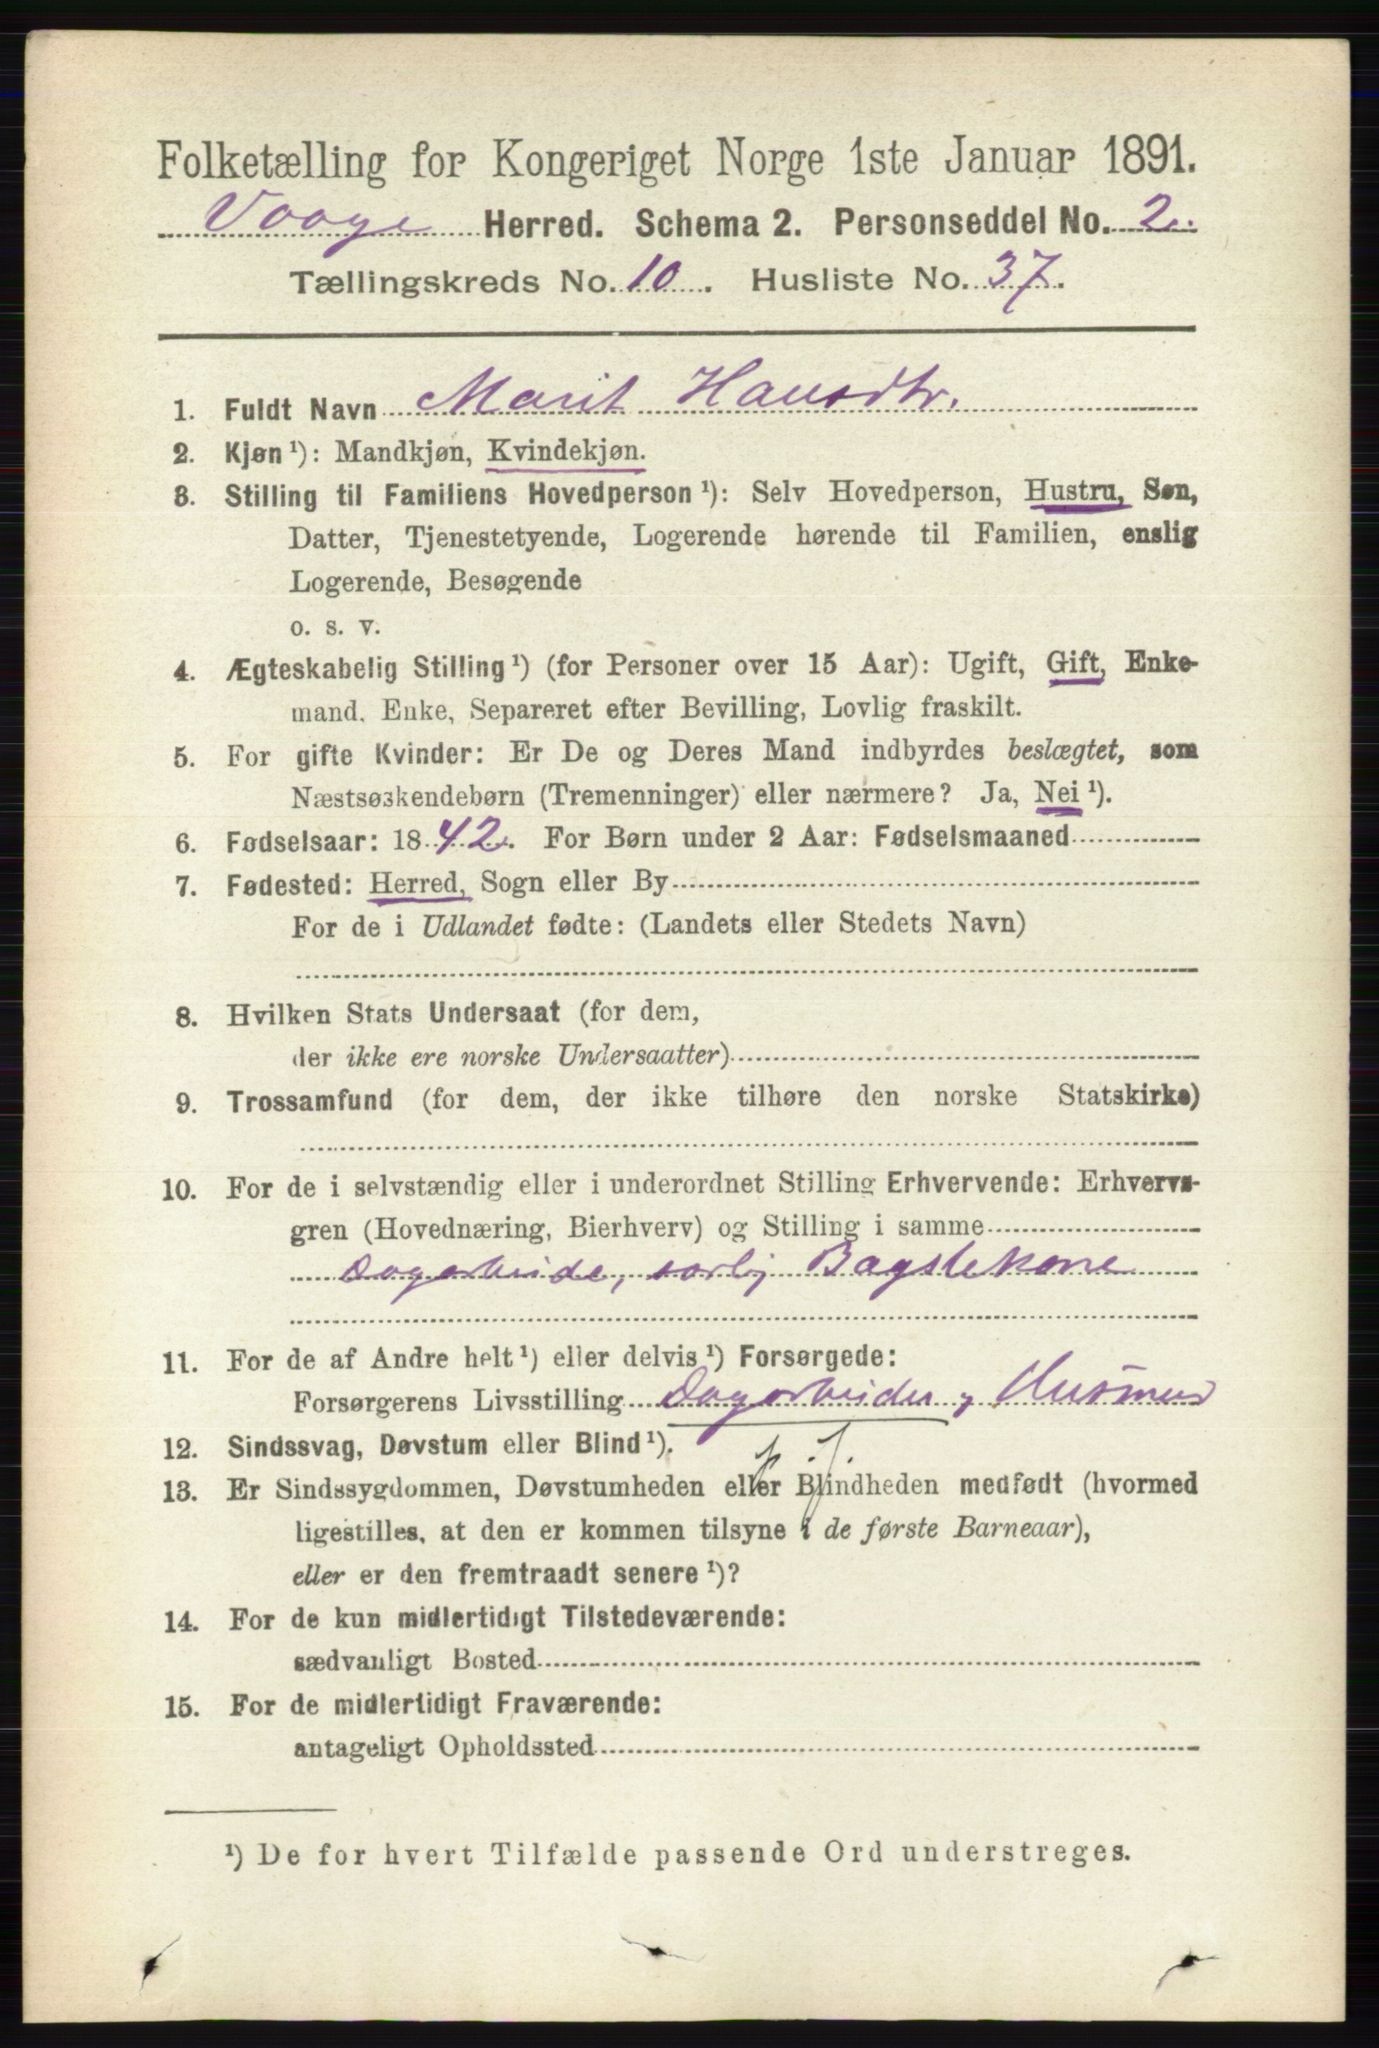 Folketælling for Kongeriget Norge 1ste Januar 1891.
Vaage Herred. Schema 2. Personseddel No. 2.
Tællingskreds No. 10. Husliste No. 37.
1. Fuldt Navn Marit Hansdtr.
2. Kjøn ¹): Mandkjøn, Kvindekjøn.
3. Stilling til Familiens Hovedperson ¹): Selv Hovedperson, Hustru, Søn,
Datter, Tjenestetyende, Logerende hørende til Familien, enslig
Logerende, Besøgende
o. s. v.
4. Ægteskabelig Stilling ¹) (for Personer over 15 Aar): Ugift, Gift, Enke-
mand, Enke, Separeret efter Bevilling, Lovlig fraskilt.
5. For gifte Kvinder: Er De og Deres Mand indbyrdes beslægtet, som
Næstsøskendebørn (Tremenninger) eller nærmere? Ja, Nei ¹).
6. Fødselsaar: 1842. For Børn under 2 Aar: Fødselsmaaned
7. Fødested: Herred, Sogn eller By
For de i Udlandet fødte: (Landets eller Stedets Navn)
8. Hvilken Stats Undersaat (for dem,
der ikke ere norske Undersaatter)
9. Trossamfund (for dem, der ikke tilhøre den norske Statskirke)
10. For de i selvstændig eller i underordnet Stilling Erhvervende: Erhvervs-
gren (Hovednæring, Bierhverv) og Stilling i samme
Dagarbeide, særlig Bagstekone
11. For de af Andre helt ¹) eller delvis ¹) Forsørgede:
Forsørgerens Livsstilling Dagarbeider,
12. Sindssvag, Døvstum eller Blind ¹).
13. Er Sindssygdommen, Døvstumheden eller Blindheden medfødt (hvormed
ligestilles, at den er kommen tilsyne i de første Barneaar),
eller er den fremtraadt senere ¹)?
14. For de kun midlertidigt Tilstedeværende:
sædvanligt Bosted
15. For de midlertidigt Fraværende:
antageligt Opholdssted
¹) De for hvert Tilfælde passende Ord understreges.